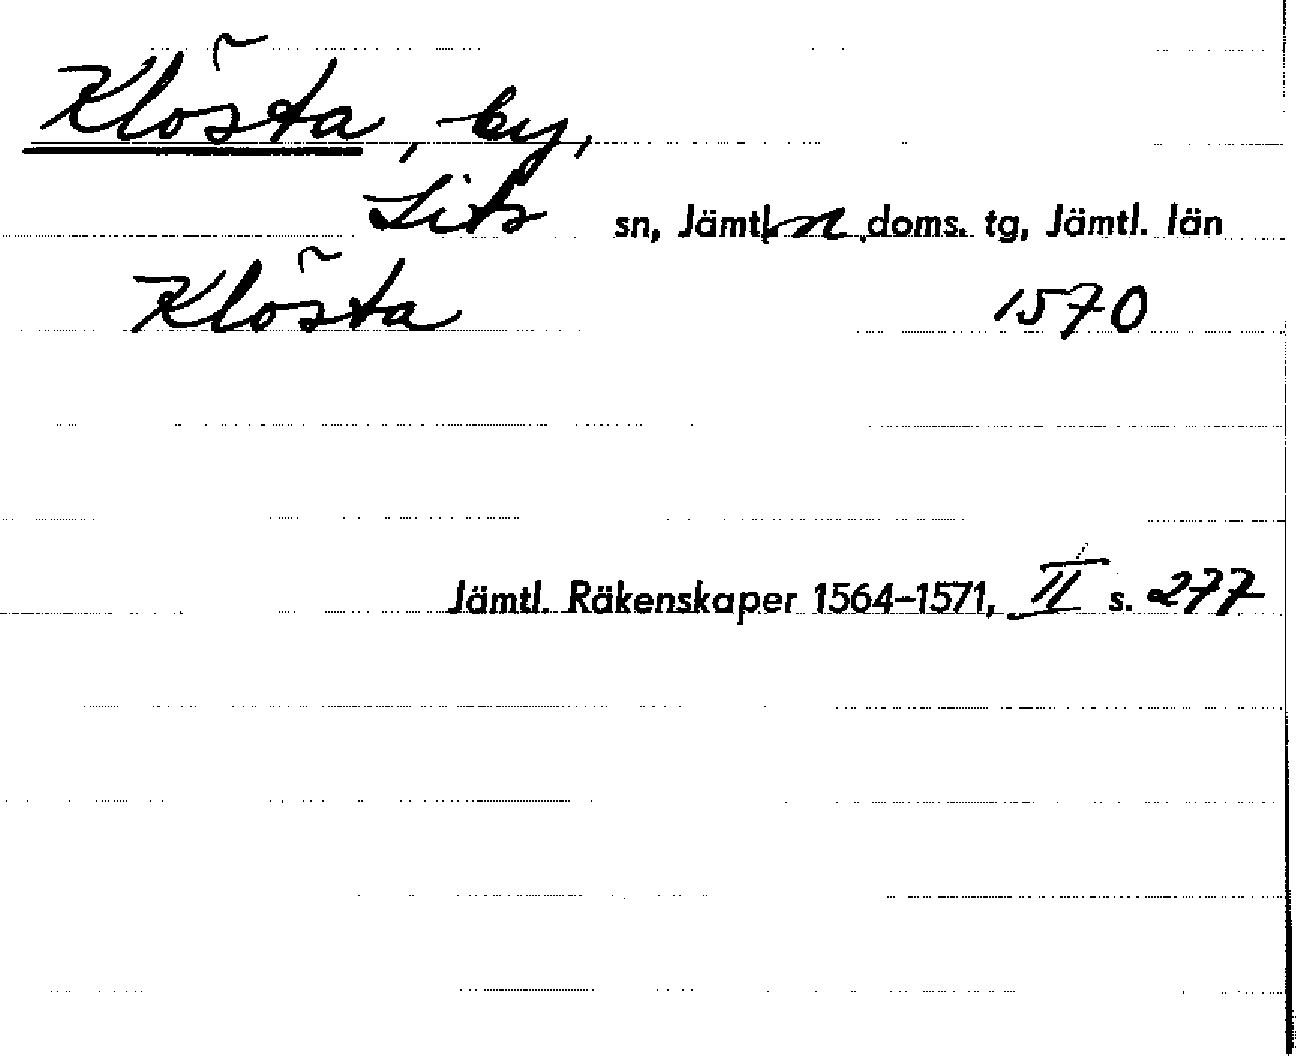 Klösta, by,
Lits sn, Jämtl. n doms. tg, Jämtl. län
Klösta 1570
Jämtl. Räkenskaper 1564-1571, II s. 277